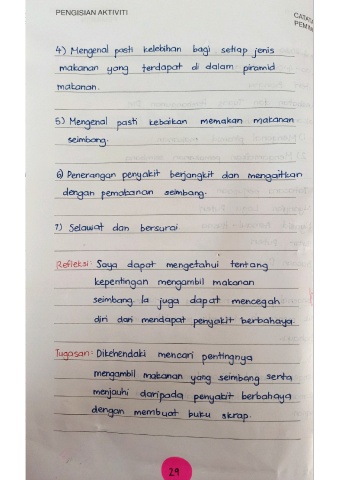 PENGISIAN AKTIVITI
CATATA
PEMIM
4) Mengenal pasti kelebihan bagi setiap jenis
makanan yang terdapat di dalam piramid
makanan.
5) Mengenal pasti kebaikan memakan makanan
seimbang.
6) Penerangan penyakit berjangkit dan mengaitkan
dengan pemakanan seimbang.
7) Selawat dan bersurai
Refleksi: Saya dapat mengetahui tentang
kepentingan mengambil makanan
seimbang. Ia juga dapat mencegah
diri dari mendapat penyakit berbahaya.
Tugasan: Dikehendaki mencari pentingnya
mengambil makanan yang seimbang serta
menjauhi daripada penyakit berbahaya
dengan membuat buku skrap.
29